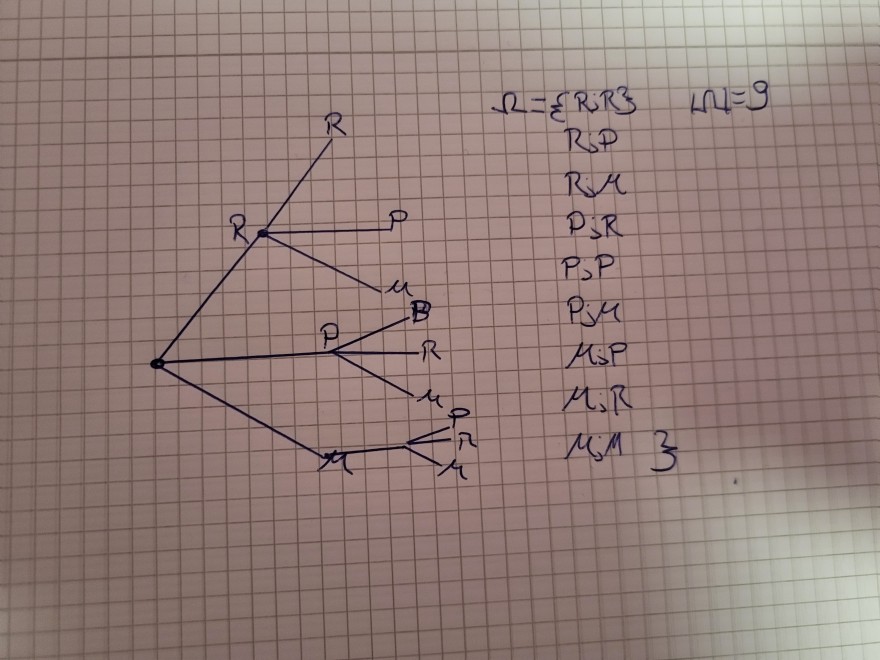 R
R
P
M
P
B
R
M
M
P
R
M
Ω = {R;R} |Ω|=9
R;P
R;M
P;R
P;P
P;M
M;P
M;R
M;M }